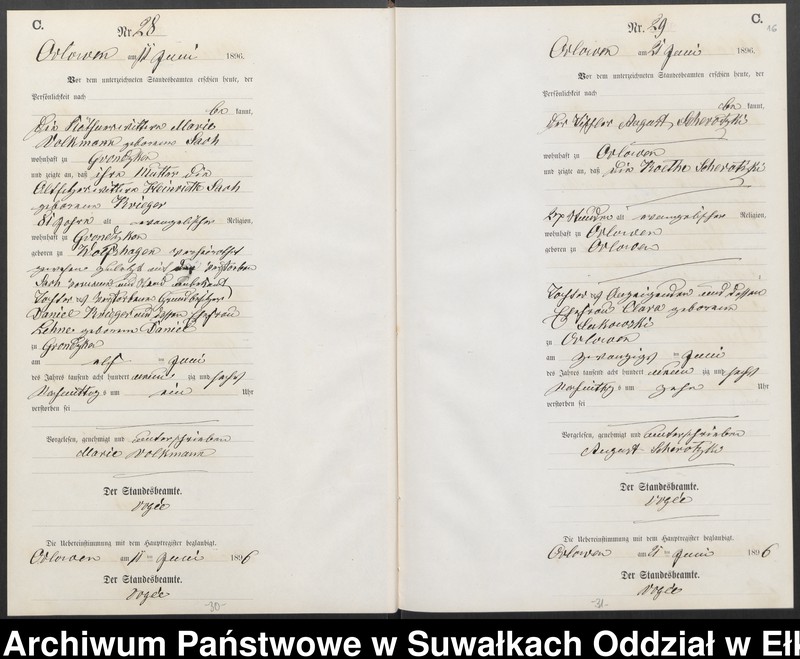 C.
Nr. 28
Orlowen am 11 Juni 1896.
Vor dem unterzeichneten Standesbeamten erschien heute, der
Persönlichkeit nach
be kannt,
die Käthnerwittwe Marie
Volkmann geborene Sach
wohnhaft zu Gronszken
und zeigte an, daß ihre Mutter die
Altsitzerwittwe Heinriette Sach
geborene Krieger
81 Jahre alt evangelischer Religion,
wohnhaft zu Gronszken
geboren zu verheirathet
gewesen zuletzt mit verstorbenen
Sach Vorname und Stand unbekannt
Tochter des verstorbenen Grundbesitzers
Daniel Krieger und dessen Ehefrau
geborene Daniel
zu Gronszken
am elf ten Juni
des Jahres tausend acht hundert neun zig und sechs
Nachmittag s um ein Uhr
verstorben sei
Vorgelesen, genehmigt und unterschrieben
Marie Volkmann
Der Standesbeamte.
Vogée
Die Uebereinstimmung mit dem Hauptregister beglaubigt.
Orlowen am 11 ten Juni 1896
Der Standesbeamte.
Vogée
-30-
C.
16
Nr. 29
Orlowen am 21 Juni 1896.
Vor dem unterzeichneten Standesbeamten erschien heute, der
Persönlichkeit nach
be kannt,
der Tischler August
wohnhaft zu Orlowen
und zeigte an, daß die Koethe
Stunden alt evangelischer Religion,
wohnhaft zu Orlowen
geboren zu Orlowen
Tochter des Anzeigenden und dessen
Ehefrau Clara geborene
Sukowski
zu Orlowen
am zwanzigs ten Juni
des Jahres tausend acht hundert neun zig und sechs
Nachmittag s um zehn Uhr
verstorben sei
Vorgelesen, genehmigt und unterschrieben
August
Der Standesbeamte.
Vogée
Die Uebereinstimmung mit dem Hauptregister beglaubigt.
Orlowen am 21 ten Juni 1896
Der Standesbeamte.
Vogée
-31-
Archiwum Państwowe w Suwałkach Oddział w Eł